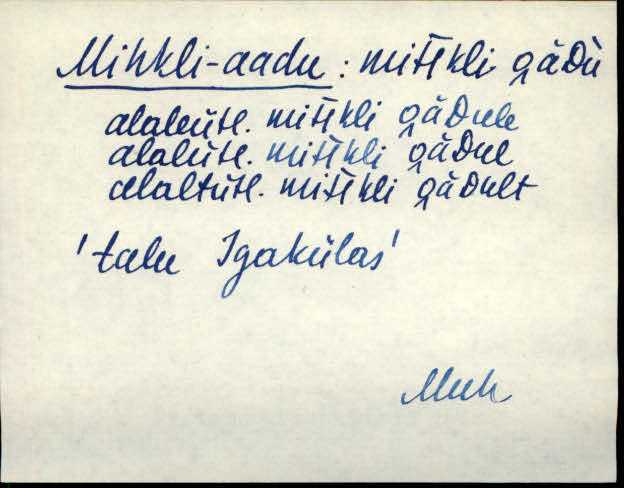 Mihkli-aadu : mihkli ạ̈̄Dù
alaleütl. mihkli ạ̈̄Dule
alalütl. mihkli ạ̈̄Dul
alaltütl. mihkli ạ̈̄Dult
'talu Igakülas'
Muh